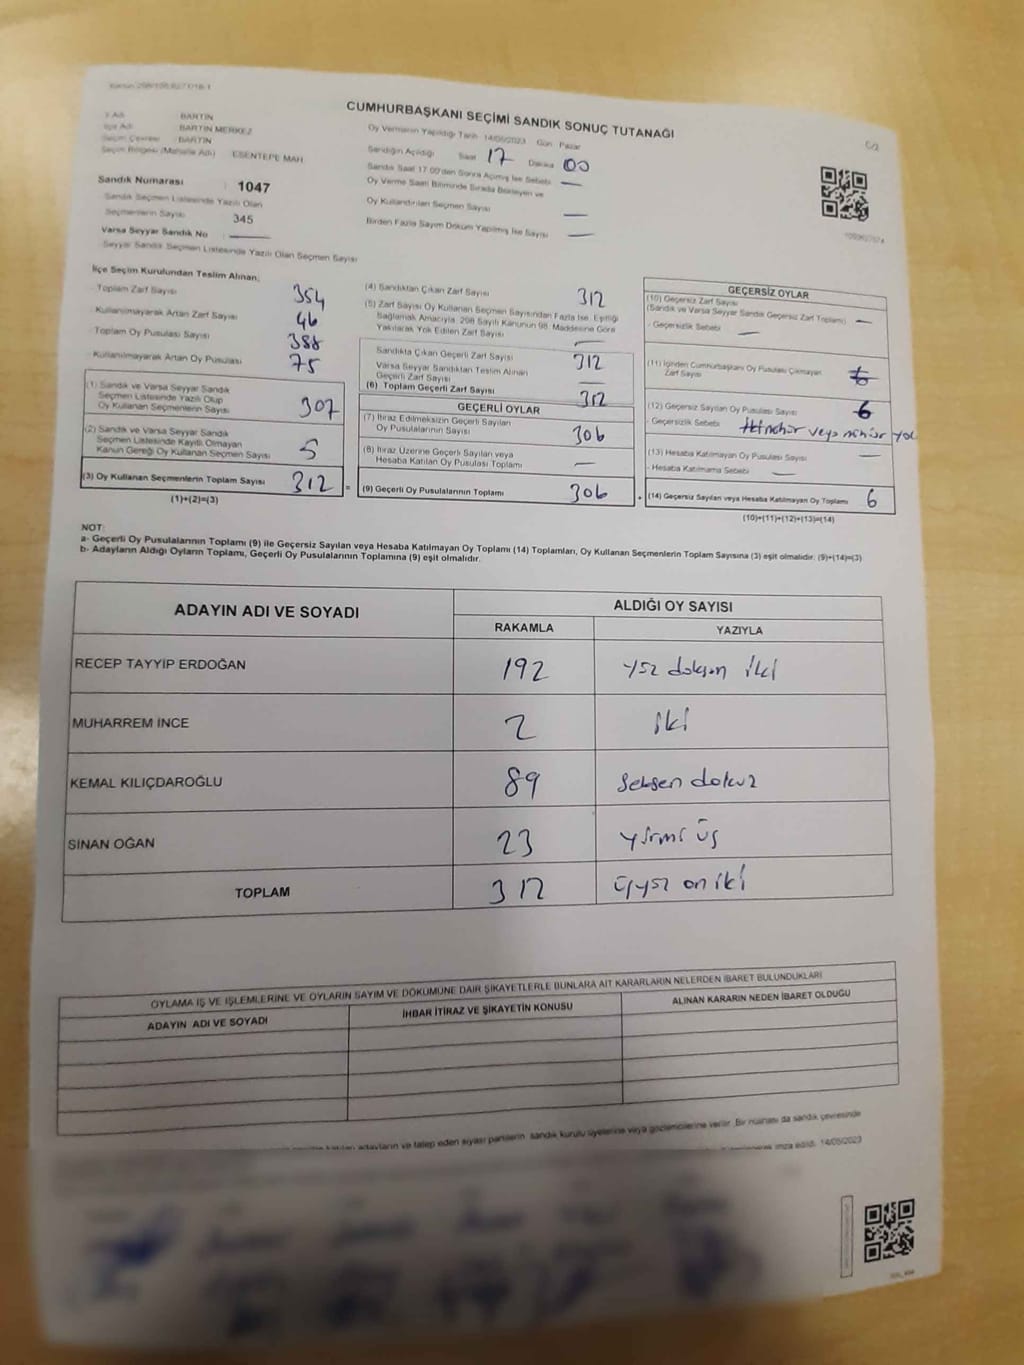 CUMHURBAŞKANI SEÇİMİ SANDIK SONUÇ TUTANAĞI
İl Adı BARTIN
İlçe Adı BARTIN MERKEZ
Seçim Çevresi BARTIN
Seçim Bölgesi (Mahalle Adı) ESENTEPE MAH.
Sandık Numarası : 1047
Sandık Seçmen Listesinde Yazılı Olan
Seçmenlerin Sayısı 345
Varsa Seyyar Sandık No
Seyyar Sandık Seçmen Listesinde Yazılı Olan Seçmen Sayısı
Oy Vermenin Yapıldığı Tarih 14/05/2023 Gün Pazar
Sandığın Açıldığı Saat 17 Dakika 00
Sandık Saat 17:00'den Sonra Açılmış İse Sebebi —
Oy Verme Saati Bitiminde Sırada Bekleyen ve
Oy Kullandırılan Seçmen Sayısı —
Birden Fazla Sayım Döküm Yapılmış İse Sayısı —
C/2
İlçe Seçim Kurulundan Teslim Alınan;
- Toplam Zarf Sayısı 354
- Kullanılmayarak Artan Zarf Sayısı 46
- Toplam Oy Pusulası Sayısı 388
- Kullanılmayarak Artan Oy Pusulası 75
(1) Sandık ve Varsa Seyyar Sandık
Seçmen Listesinde Yazılı Olup
Oy Kullanan Seçmenlerin Sayısı 307
(2) Sandık ve Varsa Seyyar Sandık
Seçmen Listesinde Kayıtlı Olmayan
Kanun Gereği Oy Kullanan Seçmen Sayısı 5
(3) Oy Kullanan Seçmenlerin Toplam Sayısı 312 =
(1)+(2)=(3)
(4) Sandıktan Çıkan Zarf Sayısı 312
(5) Zarf Sayısı Oy Kullanan Seçmen Sayısından Fazla İse, Eşitliği
Sağlamak Amacıyla, 298 Sayılı Kanunun 98. Maddesine Göre
Yakılarak Yok Edilen Zarf Sayısı —
Sandıkta Çıkan Geçerli Zarf Sayısı 312
Varsa Seyyar Sandıktan Teslim Alınan
Geçerli Zarf Sayısı —
(6) Toplam Geçerli Zarf Sayısı 312
GEÇERLİ OYLAR
(7) İtiraz Edilmeksizin Geçerli Sayılan
Oy Pusulalarının Sayısı 306
(8) İtiraz Üzerine Geçerli Sayılan veya
Hesaba Katılan Oy Pusulası Toplamı —
(9) Geçerli Oy Pusulalarının Toplamı 306 +
GEÇERSİZ OYLAR
(10) Geçersiz Zarf Sayısı
(Sandık ve Varsa Seyyar Sandık Geçersiz Zarf Toplamı) —
- Geçersizlik Sebebi —
(11) İçinden Cumhurbaşkanı Oy Pusulası Çıkmayan
Zarf Sayısı
(12) Geçersiz Sayılan Oy Pusulası Sayısı 6
- Geçersizlik Sebebi İki mühür veya mühür yok
(13) Hesaba Katılmayan Oy Pusulası Sayısı —
- Hesaba Katılmama Sebebi —
(14) Geçersiz Sayılan veya Hesaba Katılmayan Oy Toplamı 6
(10)+(11)+(12)+(13)=(14)
NOT:
a- Geçerli Oy Pusulalarının Toplamı (9) ile Geçersiz Sayılan veya Hesaba Katılmayan Oy Toplamı (14) Toplamları, Oy Kullanan Seçmenlerin Toplam Sayısına (3) eşit olmalıdır. (9)+(14)=(3)
b- Adayların Aldığı Oyların Toplamı, Geçerli Oy Pusulalarının Toplamına (9) eşit olmalıdır.
ADAYIN ADI VE SOYADI ALDIĞI OY SAYISI
RAKAMLA YAZIYLA
RECEP TAYYİP ERDOĞAN 192 yüz doksan iki
MUHARREM İNCE 2 iki
KEMAL KILIÇDAROĞLU 89 seksen dokuz
SİNAN OĞAN 23 yirmi üç
TOPLAM 312 üçyüz on iki
OYLAMA İŞ VE İŞLEMLERİNE VE OYLARIN SAYIM VE DÖKÜMÜNE DAİR ŞİKAYETLERLE BUNLARA AİT KARARLARIN NELERDEN İBARET BULUNDUKLARI
ADAYIN ADI VE SOYADI İHBAR İTİRAZ VE ŞİKAYETİN KONUSU ALINAN KARARIN NEDEN İBARET OLDUĞU
adayların ve talep eden siyasi partilerin sandık kurulu üyelerine veya gözlemcilerine verilir. Bir nüshası da sandık çevresinde
imza edildi. 14/05/2023